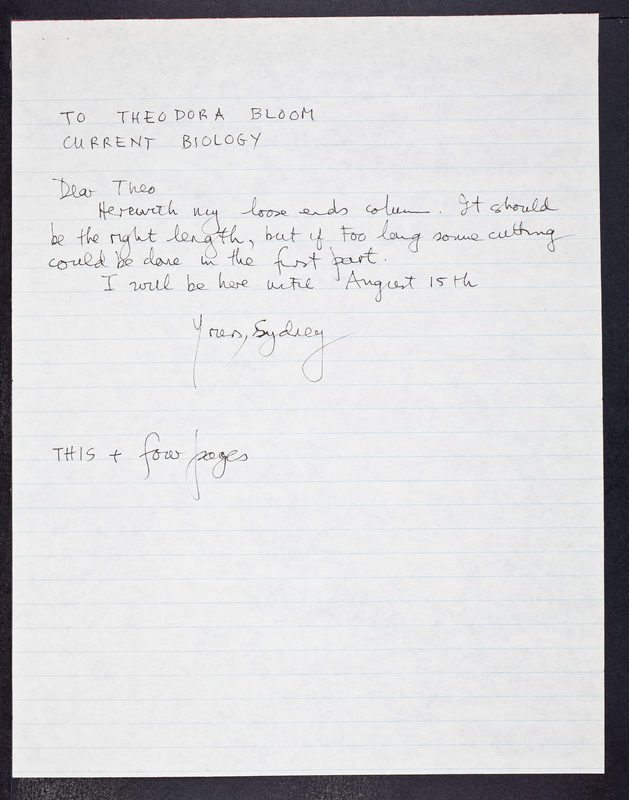 TO THEODORA BLOOM
CURRENT BIOLOGY
Dear Theo
Herewith my loose ends column. It should
be the right length, but if too long some cutting
could be done in the first part.
I will be here until August 15th
Yours, Sydney
THIS + four pages